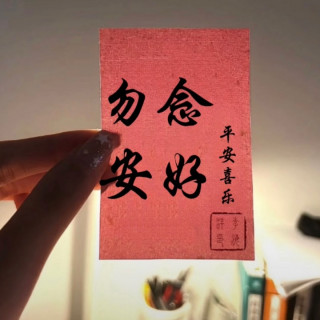 勿念
安好
平安喜乐